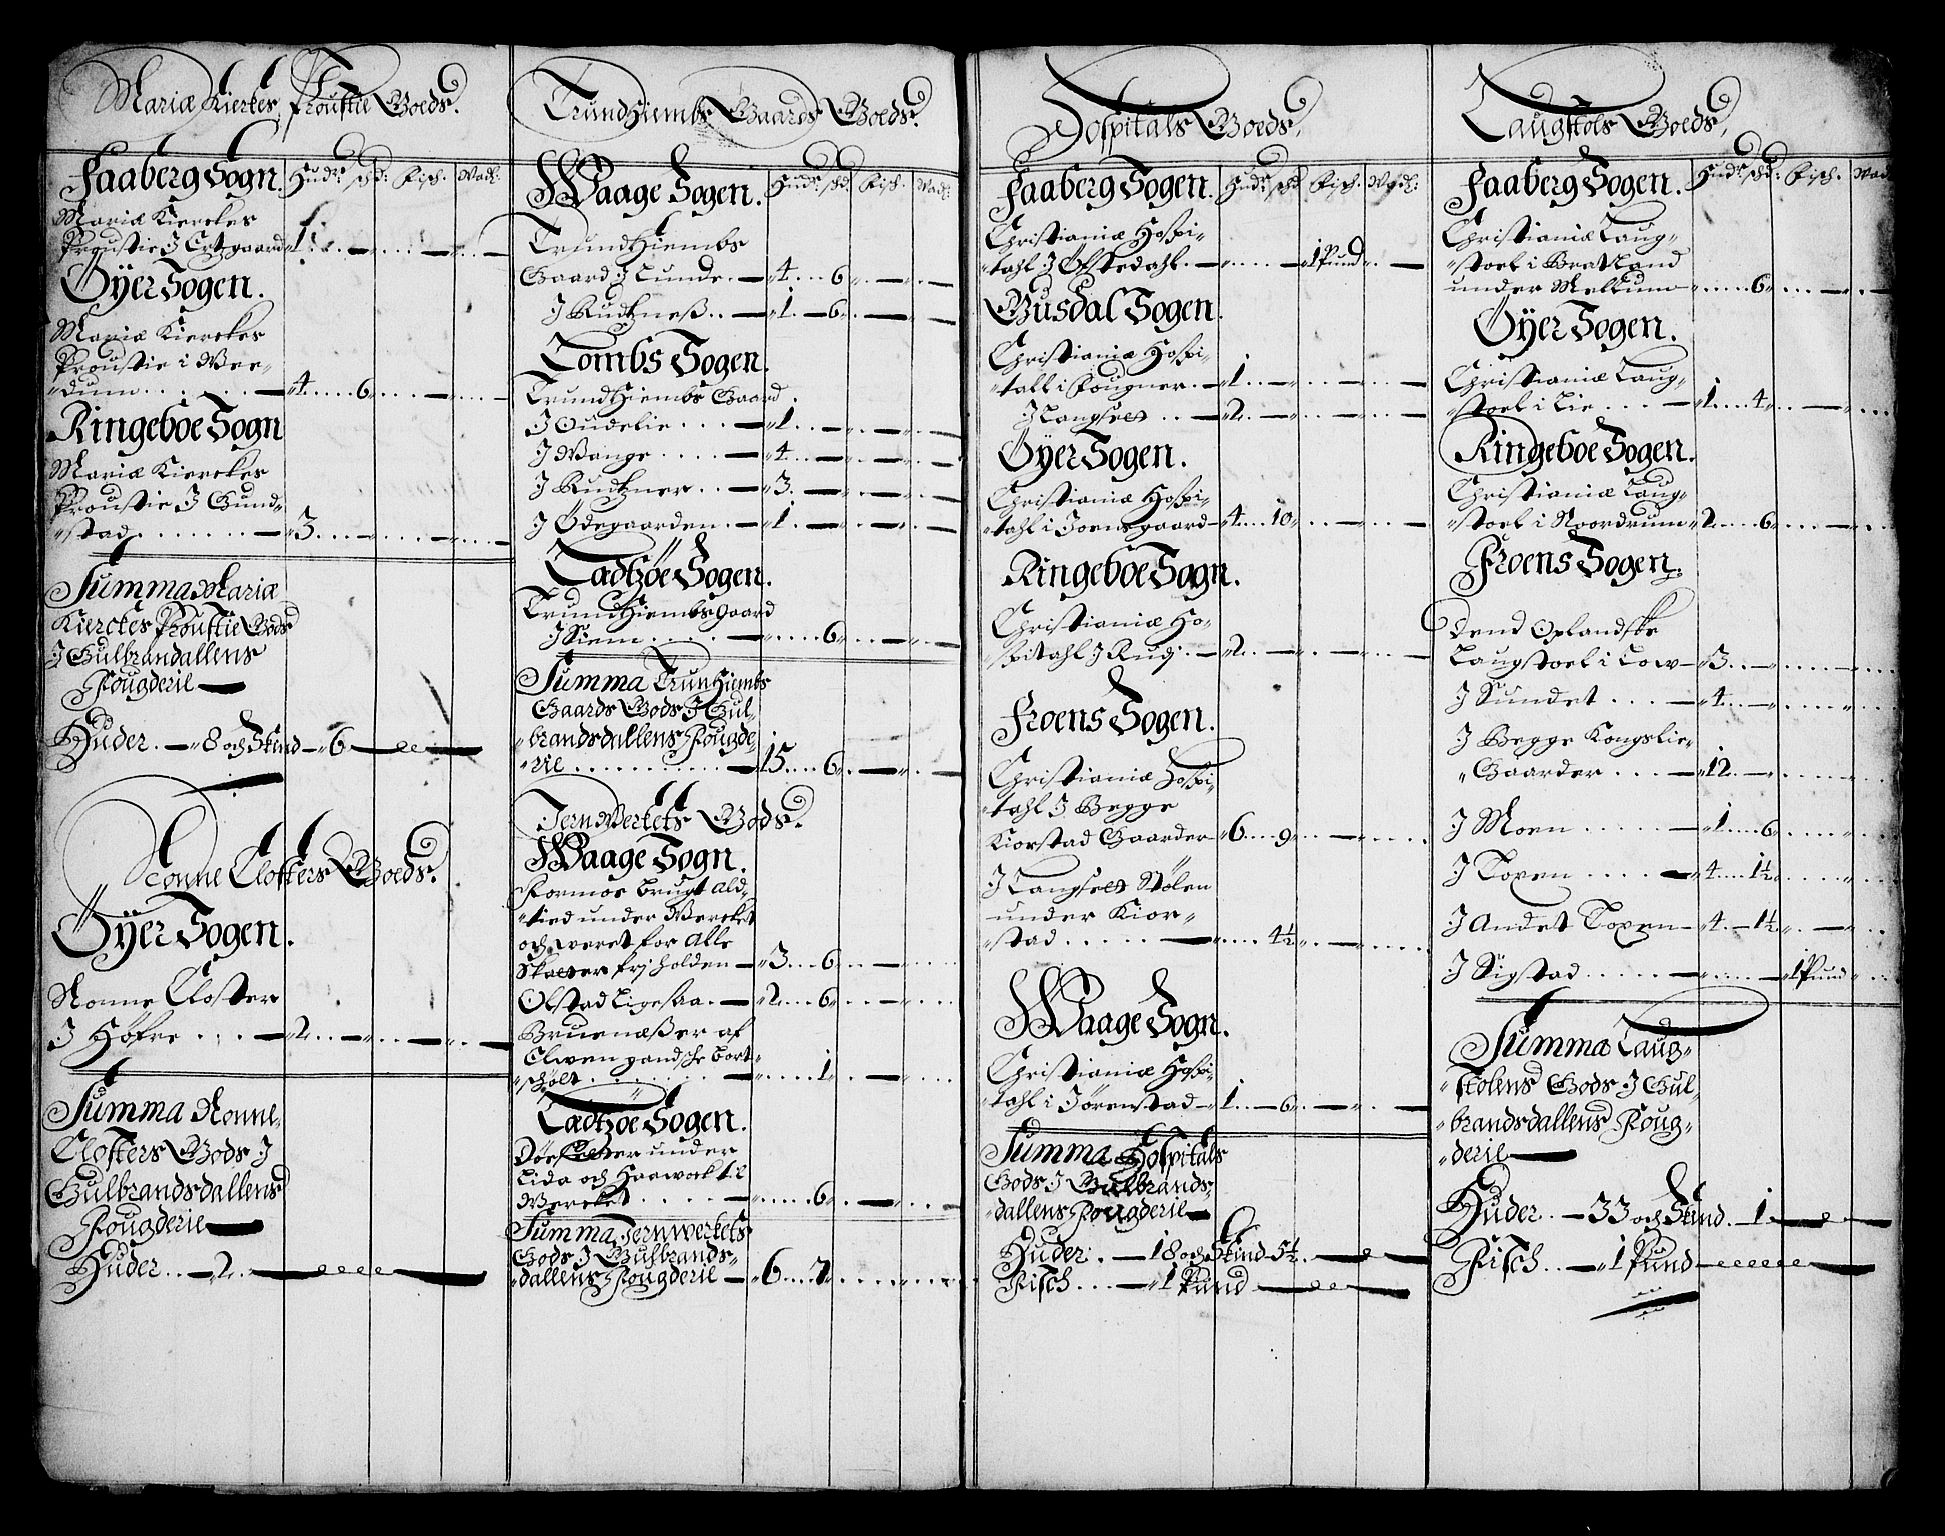 Mariæ Kierkes Proustie Goeds.
Faaberg Sogn. Hudr. skd: Fisch. Wadl:
Mariæ Kierckes
Proustie J Ertzgaard 1.
Öyer Sogen.
Mariæ Kierckes
Proustie i Wee-
dum 4. 6.
Ringeboe Sogn
Mariæ Kierckes
Proustie J Gund-
stad 3.
Summa Mariæ
Kierckes Proustie Gods
J Gulbrandallens
Fougderie
Huder. 8 och Skind 6
Nonne Closters Goeds.
Öyer Sogen.
Nonne Closter
J Höfre 2.
Summa Nonne-
Closters Gods J
Gulbrandsdallens
Fougderie
Huder 2.
TrundHiembs Gaards Goeds.
Waage Sogen. Hudr. skd. Fisch. Wad:
TrundHiembs
Gaard J Lunde. 4. 6.
J Rudtzness. 1. 6.
Lombs Sogen.
TrundHiembs Gaard.
J Gudelie 1.
J Wange 4.
J Rudtzner 3.
J Ödegaarden 1.
Ladtzöe Sogen.
TrundHiembs gaard
J Siem 6.
Summa TrunHiembs
Gaards Gods J Gul-
brandsdallens Fougde-
rie 15. 6.
JernWerkets Gods.
Waage Sogn.
Formoe brugt ald-
tied under Wercket
och weret for alle
Skatter frj holden 3. 6.
Olstad Ligesaa. 2. 6.
Bruenæsser af
Elwen gandsche bort-
schölt 1.
Ladtzöe Sogen.
under
Lida och Haawock til
Wercket 6.
Summa Jernwerkets
Gods J Gulbrands-
dallens Fougderie 6. 7.
Hospitals Goeds.
Faaberg Sogen. Hudr. skd. Fisch. Wadl:
Christianiæ Hospi-
tahl J Öfstedahl. 1 Pund
Gusdal Sogen.
Christianiæ Hospi-
tall i Fougner. 1.
J Langseet 2.
Öyer Sogen.
Christianiæ Hospi-
tahl i Joensgaard 4. 10.
Ringeboe Sogn.
Christianiæ Ho-
spitahl J Rudj. 2.
Froens Sogen.
Christianiæ Hospi-
tahl J Begge
Kiorstad Gaarder 6. 9.
J Langseet Stölen
under Kior-
stad 4½
Waage Sogn.
Christianiæ Hospi-
tahl i Jörenstad 1. 6.
Summa Hospitals
Gods J Gulbrands-
dallens Fougderie
Huder. 18 och Skind 5½.
Fisch. 1 Pund
Laugstols Goeds.
Faaberg Sogen. Hudr. skd: Fisch. Wad
Christianiæ Laug-
stoel i Bratland
under Melkum 6.
Öyer Sogen.
Christianiæ Laug-
stoel i Lie 1. 4.
Ringeboe Sogen.
Christianiæ Laug-
stoel i Noordrum 2. 6.
Froens Sogen.
Dend Oplandske
Laugstoel i Low 3.
J Sundet 4.
J Begge Kongslie-
Gaarder 12.
J Moen 1. 6.
J Loxen 4. 1½
J Andet Loxen 4. 1½
J Sigstad 1 Pund
Summa Laug-
stolens Gods J Gul-
brandsdallens Foug-
derie
Huder. 33 och Skind. 1
Fisch. 1 Pund